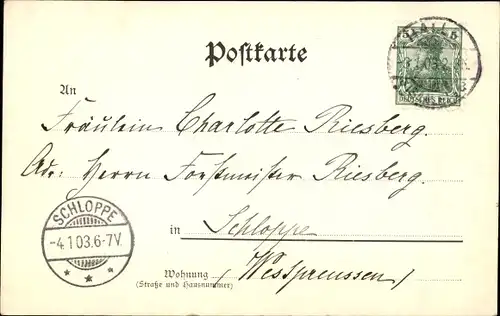 Postkarte
An
Fräulein Charlotte Riesberg.
Adr: Herrn Forstmeister Riesberg.
in Schloppe
Wohnung
(Straße und Hausnummer)
(Westpreussen)
DEUTSCHES REICH
SCHLOPPE
-4.1.03.6-7V.
* * *